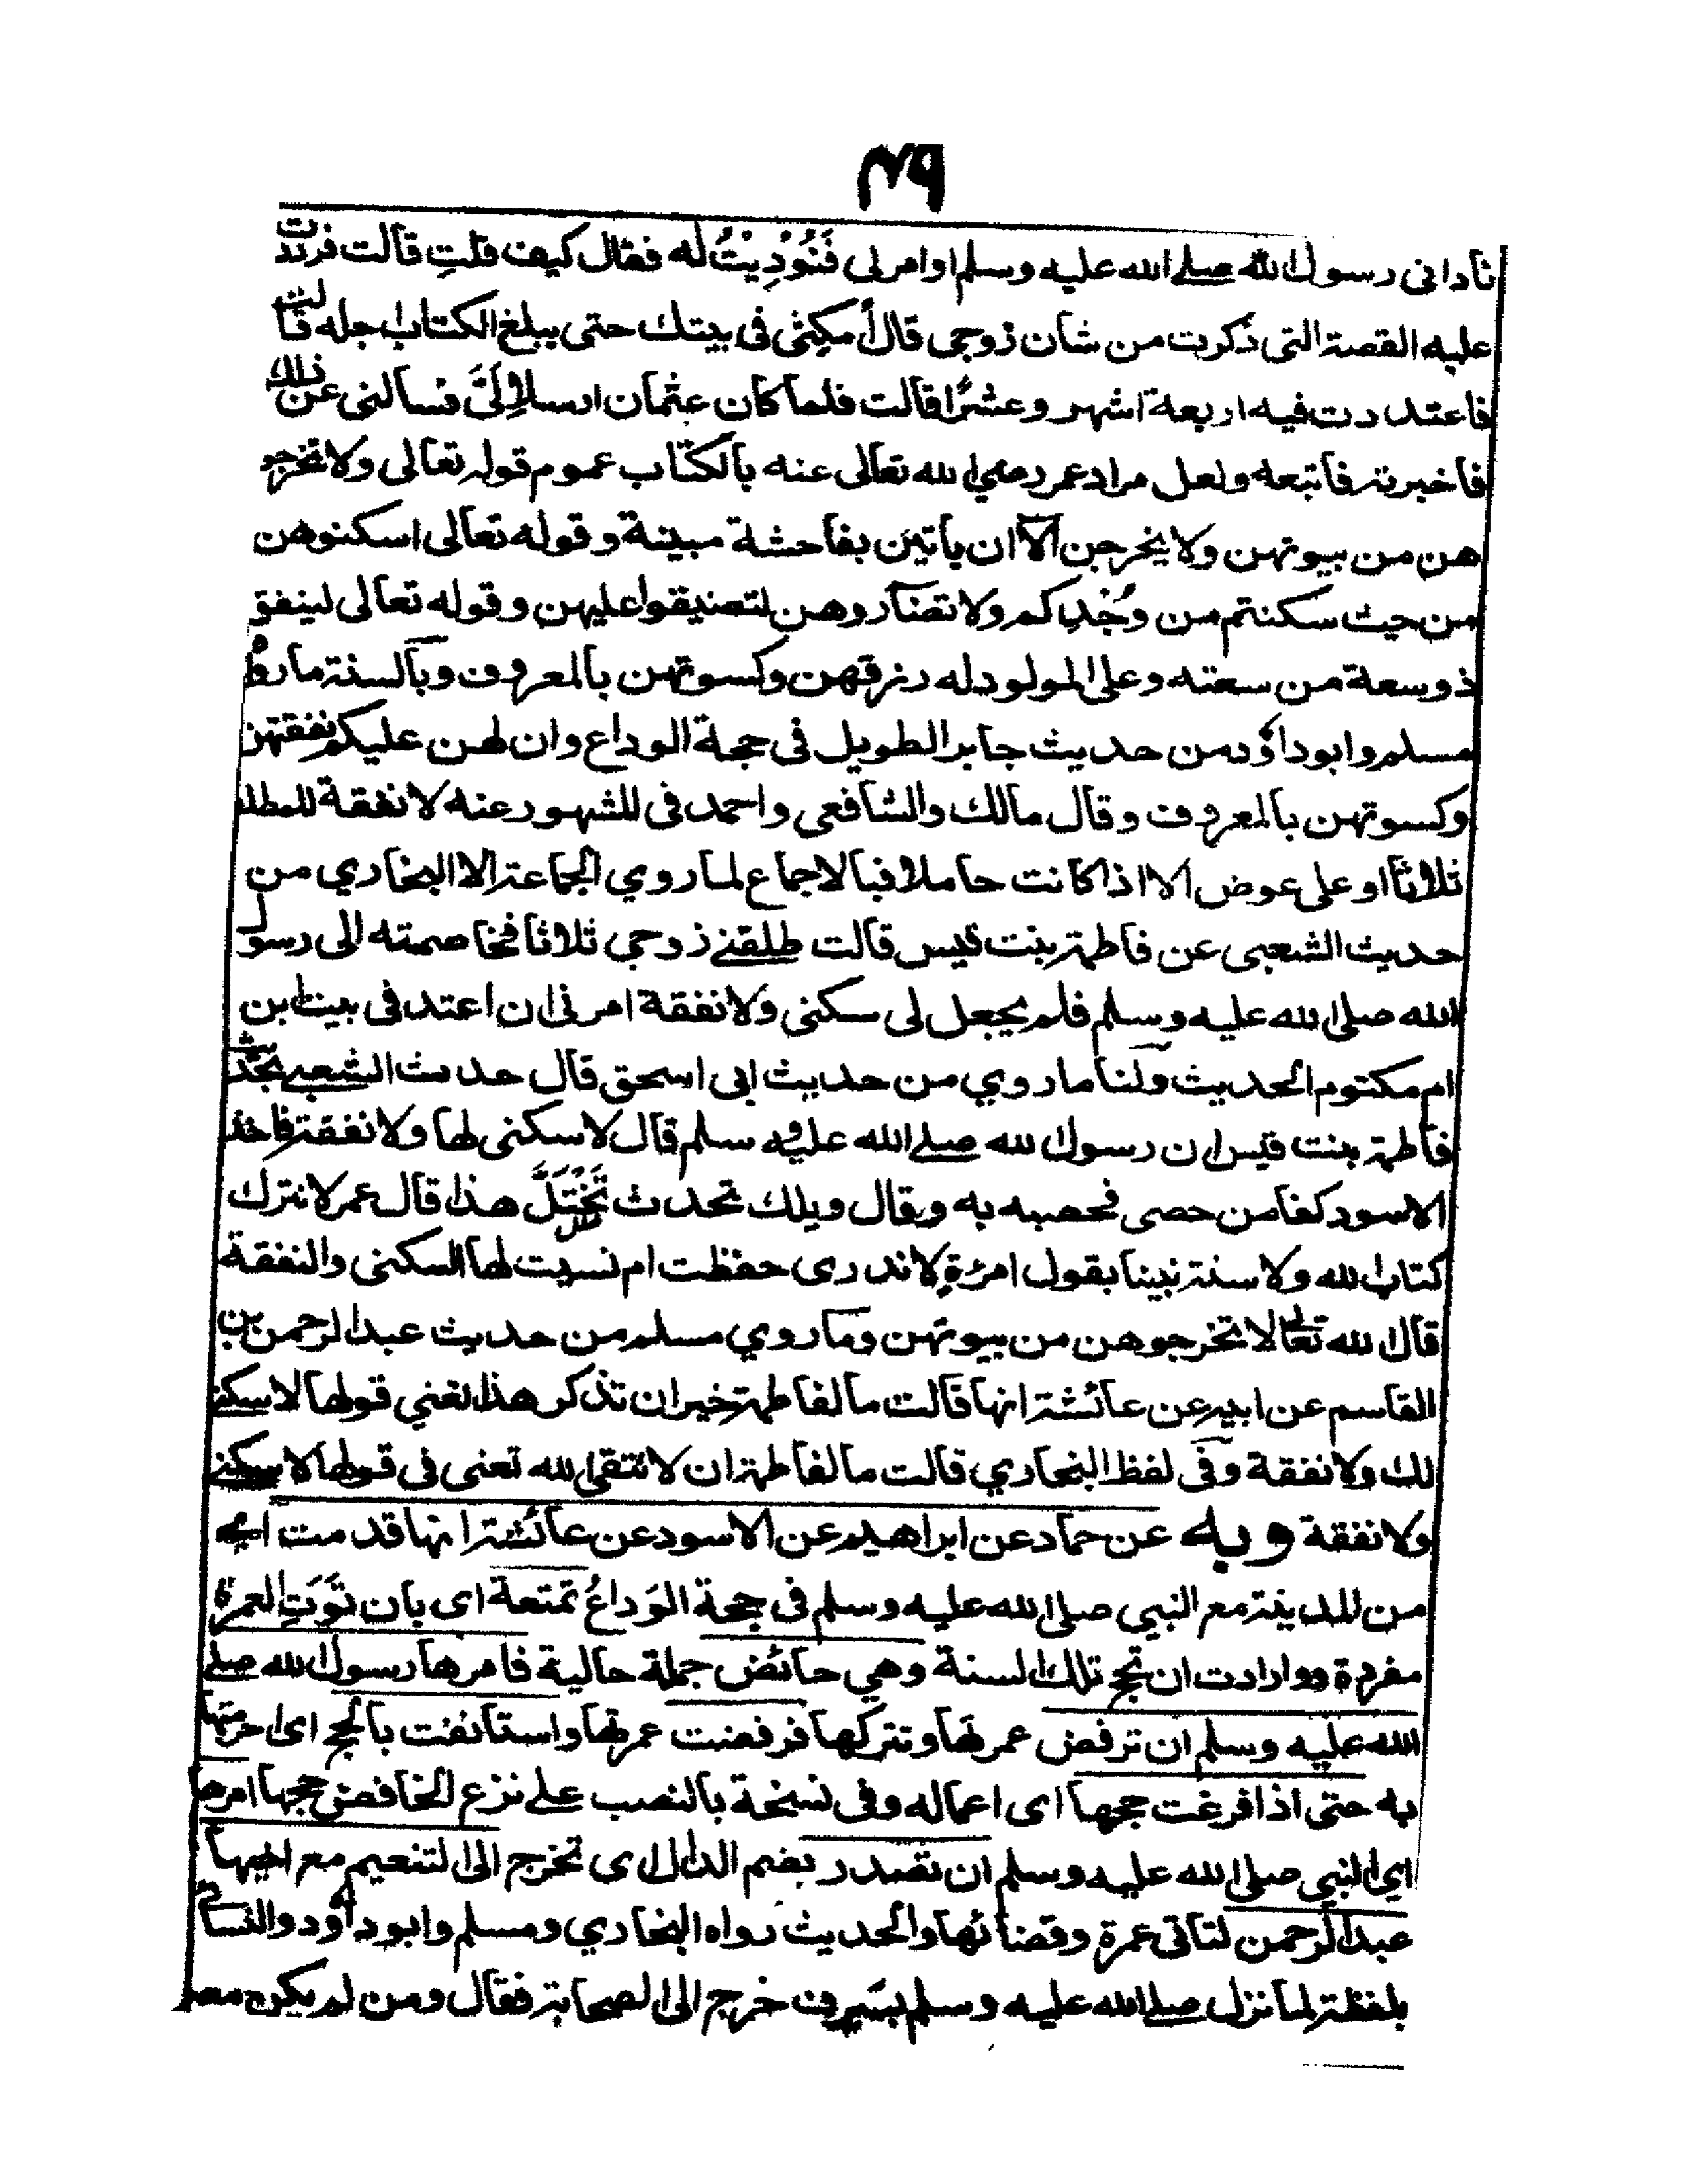 ٢٩
نادانى رسول الله صلى الله عليه وسلم او امر لى فَنُودِيْتُ له فقال كيف قلتِ قالت فرددت
عليه القصة التى ذكرت من شان زوجى قال اُمكثى فى بيتك حتى يبلغ الكتاب اجله قالت
فاعتددت فيه اربعة اشهر وعشرًا قالت فلما كان عثمان ارسل اِلَىَّ فسالنى عن ذلك
فاخبرته فاتبعه ولعل مراد عمر رضي الله تعالى عنه بالكتاب عموم قوله تعالى ولا تخرجو
هن من بيوتهن ولا يخرجن الا ان ياتين بفاحشة مبينة وقوله تعالى اسكنوهن
من حيث سكنتم من وُجْدِكم ولا تضآروهن لتضيقوا عليهن وقوله تعالى لينفق
ذو سعة من سعته وعلى المولود له رزقهن وكسوتهن بالمعروف وبالسنة ما رواه
مسلم وابوداؤد من حديث جابر الطويل فى حجة الوداع وان لهن عليكم نفقتهن
وكسوتهن بالمعروف وقال مالك والشافعى واحمد فى المشهور عنه لا نفقة للمطلقة
ثلاثا او على عوض الا اذا كانت حاملا فبالاجماع لما روي الجماعة الا البخاري من
حديث الشعبى عن فاطمة بنت قيس قالت طلقنے زوجي ثلاثا فخاصمته الى رسول
الله صلى الله عليه وسلم فلم يجعل لى سكنى ولا نفقة امرنى ان اعتد فى بيت ابن
ام مكتوم الحديث ولنا ما روي من حديث ابى اسحق قال حدث الشعبے بحديث
فاطمة بنت قيس ان رسول الله صلے الله عليه وسلم قال لا سكنى لها ولا نفقة فاخذ
الاسود كفا من حصى فحصبه به وقال ويلك تحدث بمثل هذا قال عمر لا نترك
كتاب الله ولا سنة نبينا بقول امرءة لا ندرى حفظت ام نسيت لها السكنى والنفقة
قال الله تعالى لا تخرجوهن من بيوتهن وما روي مسلم من حديث عبد الرحمن بن
القاسم عن ابيه عن عائشة انها قالت ما لفاطمة خير ان تذكر هذا تعني قولها لا سكنے
لك ولا نفقة وفى لفظ البخاري قالت ما لفاطمة ان لا تتقى الله تعنى فى قولها لا سكنے
ولا نفقة وبه عن حماد عن ابراهيم عن الاسود عن عائشة انها قدمت اي
من المدينة مع النبي صلى الله عليه وسلم فى حجة الوَداع تمتعة اى بان نَوَتِ العمرة
مفردة وارادت ان تحج تلك السنة وهي حائض جملة حالية فامرها رسول الله صلے
الله عليه وسلم ان ترفض عمرتها وتتركها فرفضت عمرتها واستانفت بالحج اى احرمتها
به حتى اذا فرغت حجها اى اعماله وفى نسخة بالنصب علے نزع الخافض حجها امرها
اي النبي صلى الله عليه وسلم ان تصدر بضم الدال اى تخرج الى التنعيم مع اخيها
عبد الرحمن لتاتى عمرة وقضائها والحديث رواه البخاري ومسلم وابوداؤد والنسائى
بلفظة لما نزل صلے الله عليه وسلم بسَرِف خرج الى الصحابة فقال ومن لم يكن معه